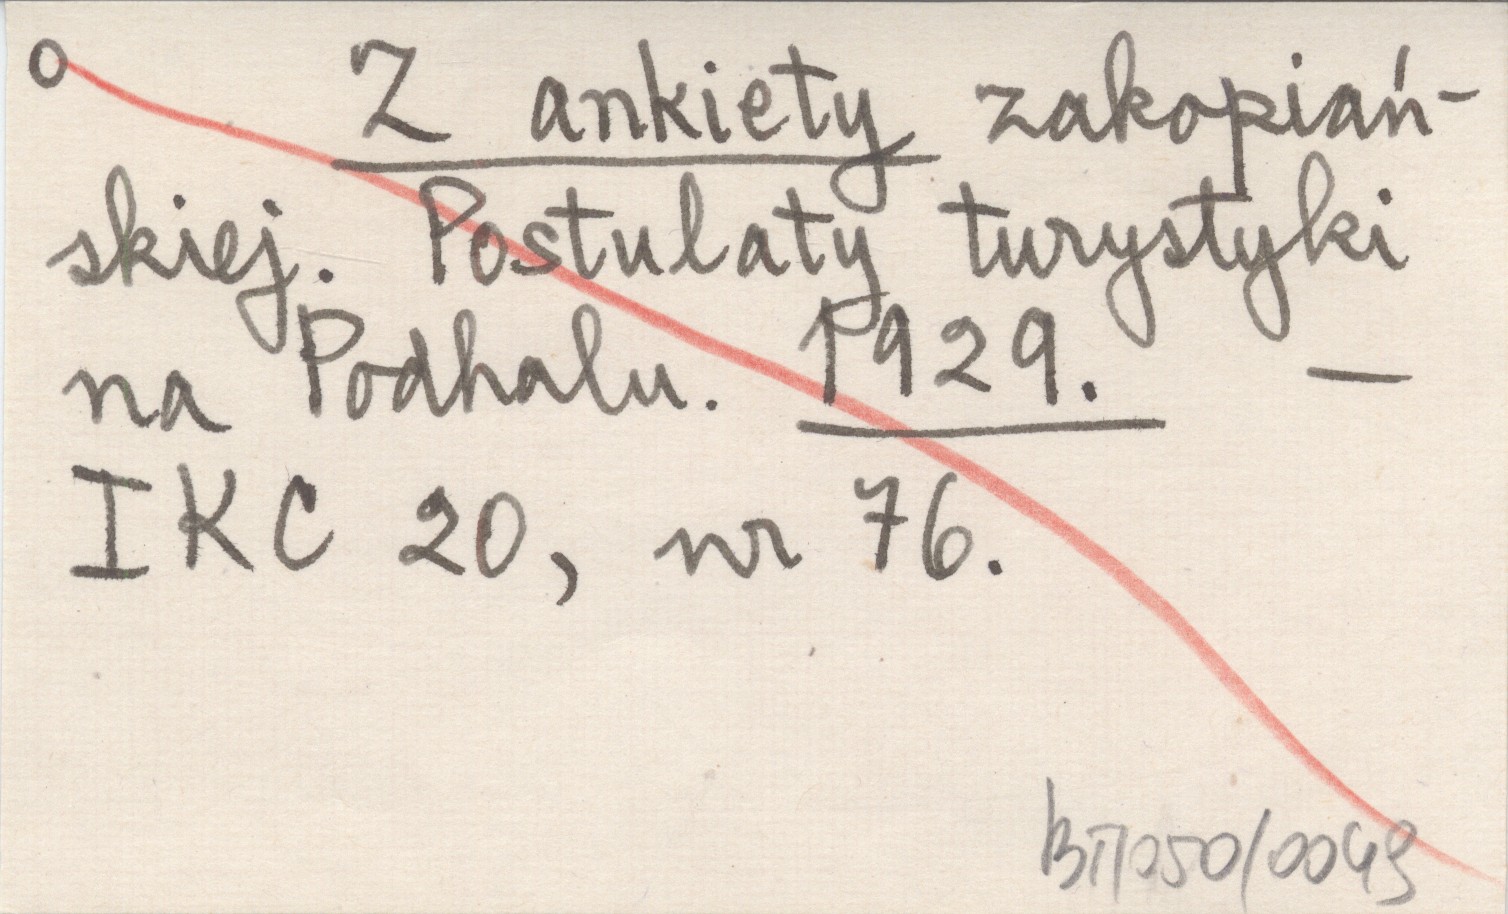 o Z ankiety zakopiań-
skiej. Postulaty turystyki
na Podhalu. 1929. —
IKC 20, nr 76.
BT/050/0049